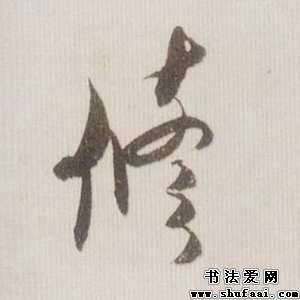 修
书法爱网
www.shufaai.com